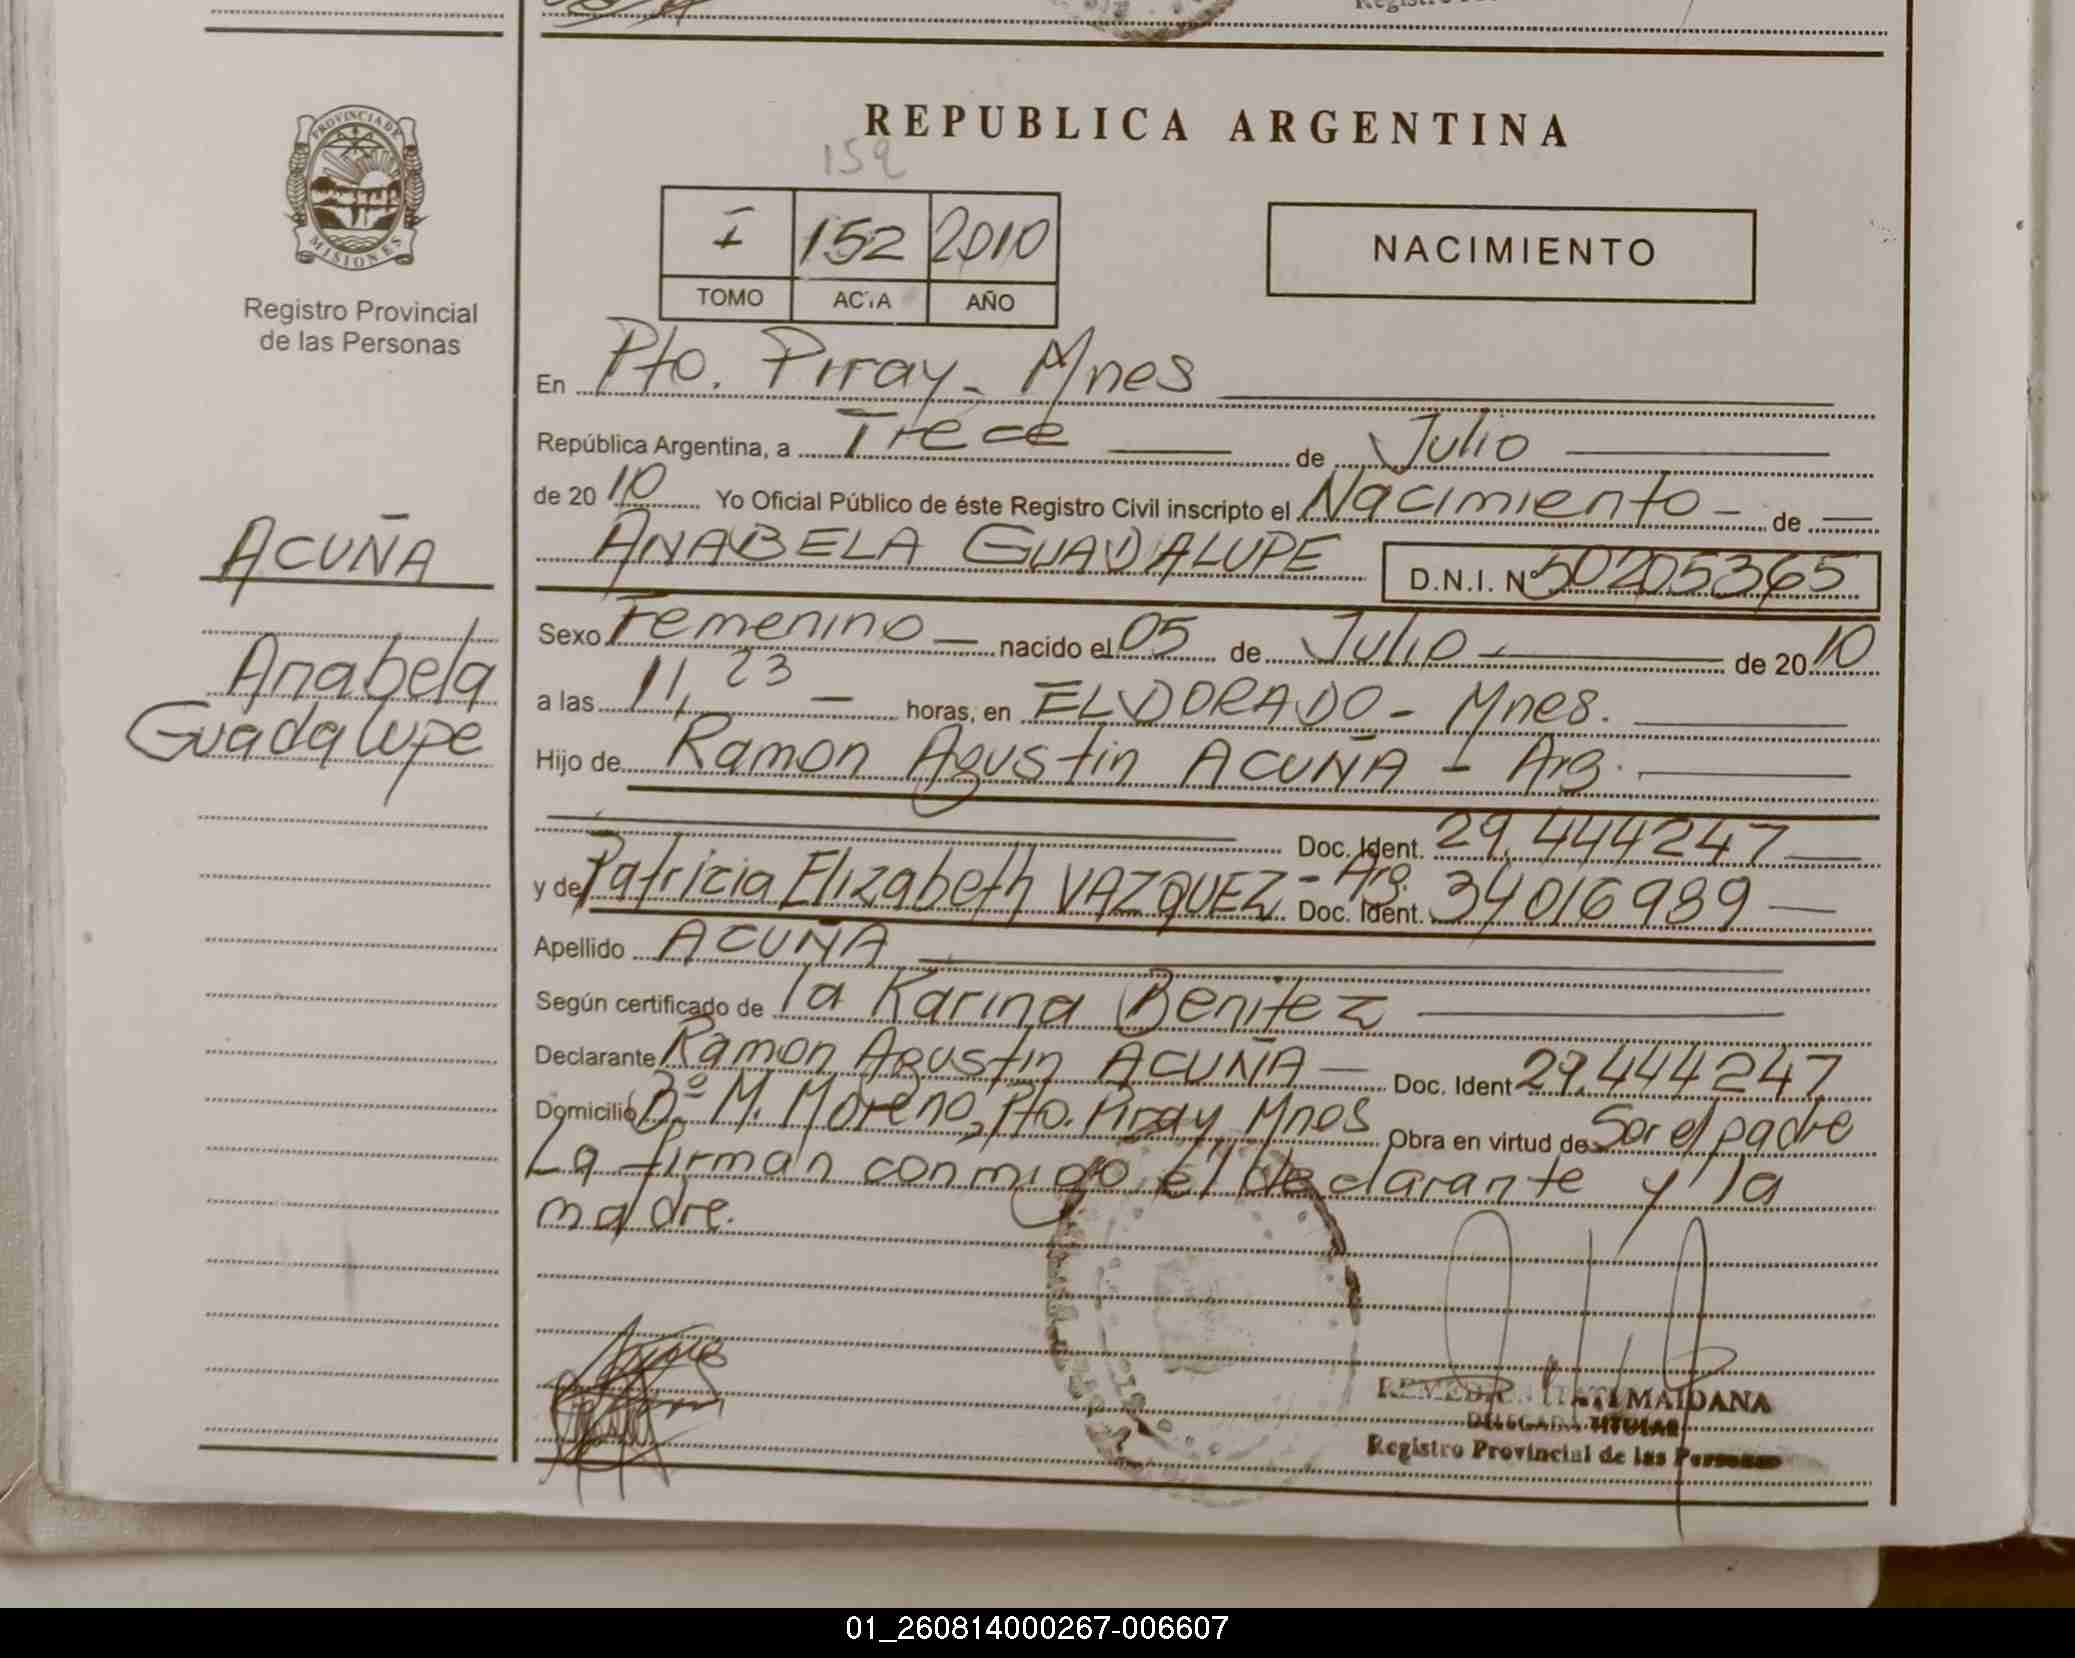 REPUBLICA ARGENTINA
152
PROVINCIA DE
MISIONES
Registro Provincial
de las Personas
I 152 2010
TOMO ACTA AÑO
NACIMIENTO
En Pto. Piray - Mnes
República Argentina, a Trece de Julio
de 2010 Yo Oficial Público de éste Registro Civil inscripto el Nacimiento - de
ANABELA GUADALUPE D.N.I. Nº 50205365
ACUÑA
Anabela
Guadalupe
Sexo Femenino nacido el 05 de Julio - de 2010
a las 11,23 - horas, en ELDORADO - Mnes.
Hijo de Ramon Agustin ACUÑA - Arg.
Doc. Ident. 29.444247
y de Patricia Elizabeth VAZQUEZ - Arg. Doc. Ident. 34016989
Apellido ACUÑA
Según certificado de la Karina Benitez
Declarante Ramon Agustin ACUÑA - Doc. Ident 29.444247
Domicilio Bº M. Moreno, Pto. Piray Mnes Obra en virtud de Ser el padre
La firman conmigo el declarante y la
madre.
MAIDANA
DELEGADA TITULAR
Registro Provincial de las Personas
01_260814000267-006607